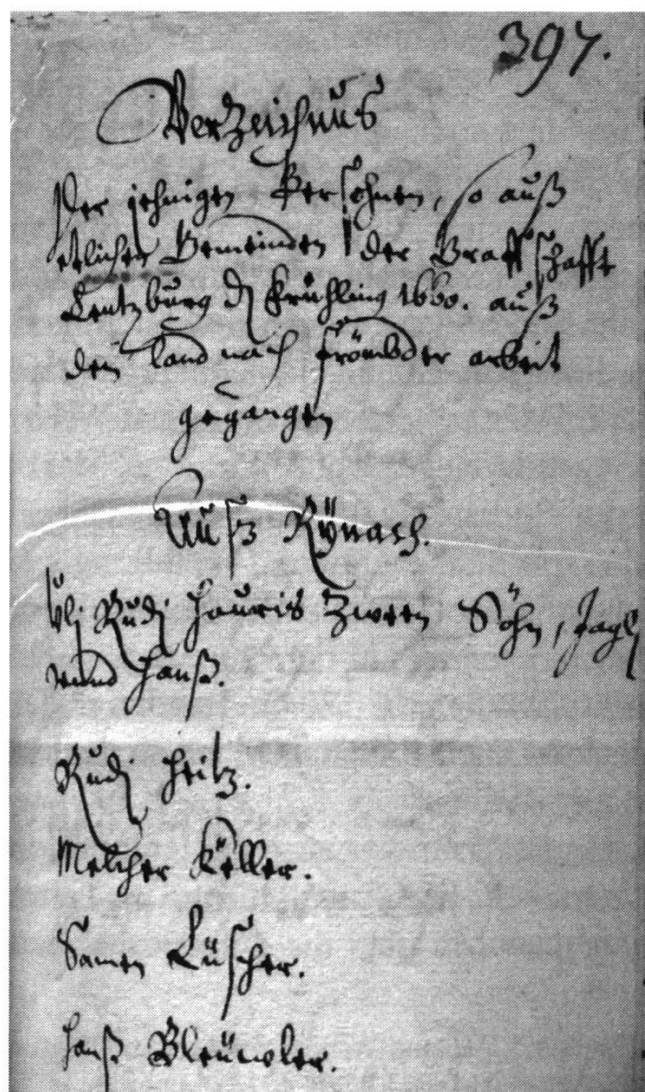 397.
Verzeichnus
Der jehnigen Persohnen, so auß
etlichen Gemeinden der Graffschafft
Lentzburg dß Frühling 1660. auß
dem land nach frömbder arbeit
gegangen
Auß Rÿnach.
Ulj Rudj Hauris Zween Söhn, Jaglj
unnd Hanß.
Rudj Heitz.
Melcher Keller.
Samen Lüscher.
Hanß Bleuwler.